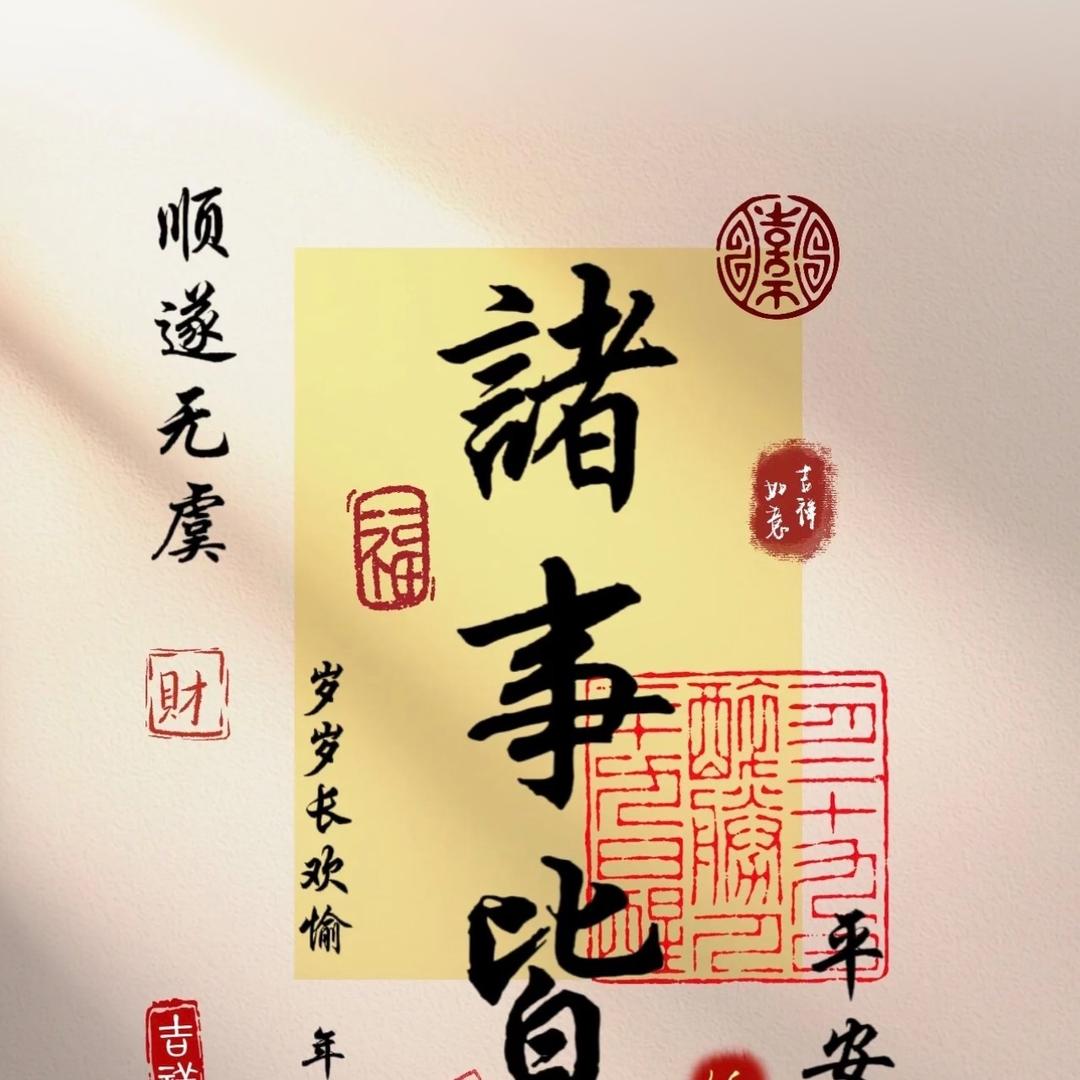 諸事皆
顺遂无虞
岁岁长欢愉
年
平安
吉祥
如意
福
財
吉祥